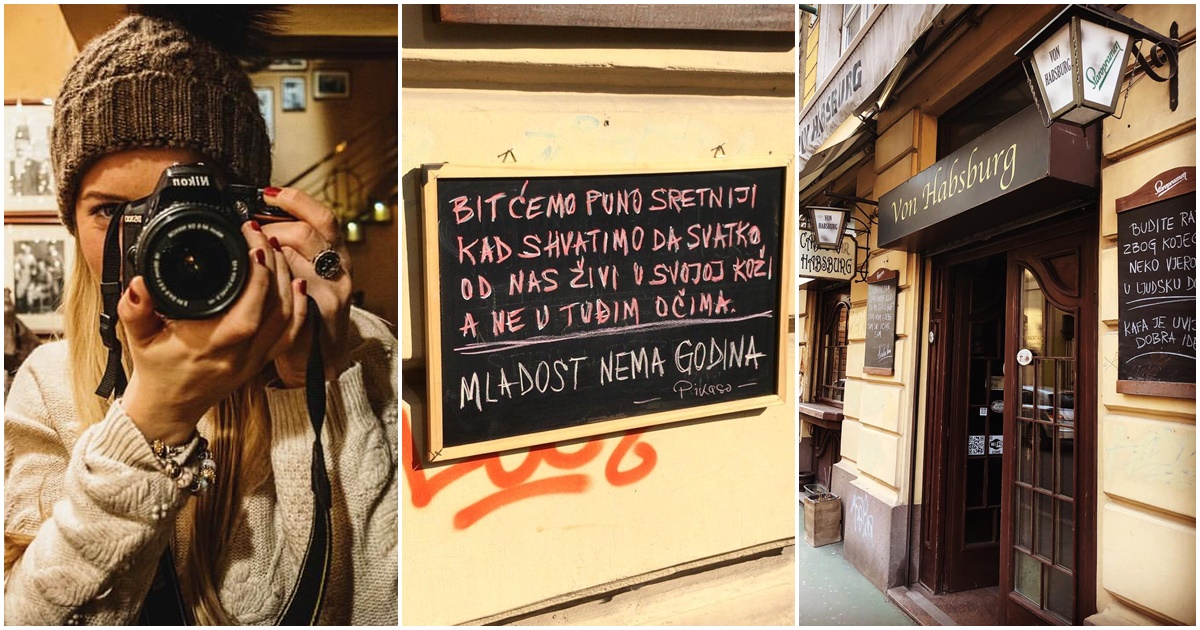 Nikon
D5200
BIT ĆEMO PUNO SRETNIJI
KAD SHVATIMO DA SVATKO
OD NAS ŽIVI U SVOJOJ KOŽI
A NE U TUĐIM OČIMA.
MLADOST NEMA GODINA
— Pikaso —
HABSBURG
VON
HABSBURG
Staropramen
Von Habsburg
VON
HABSBURG
HABSBURG
Staropramen
BUDITE RA
ZBOG KOJEG
NEKO VJERO
U LJUDSKU DO
KAFA JE UVI
DOBRA IDE